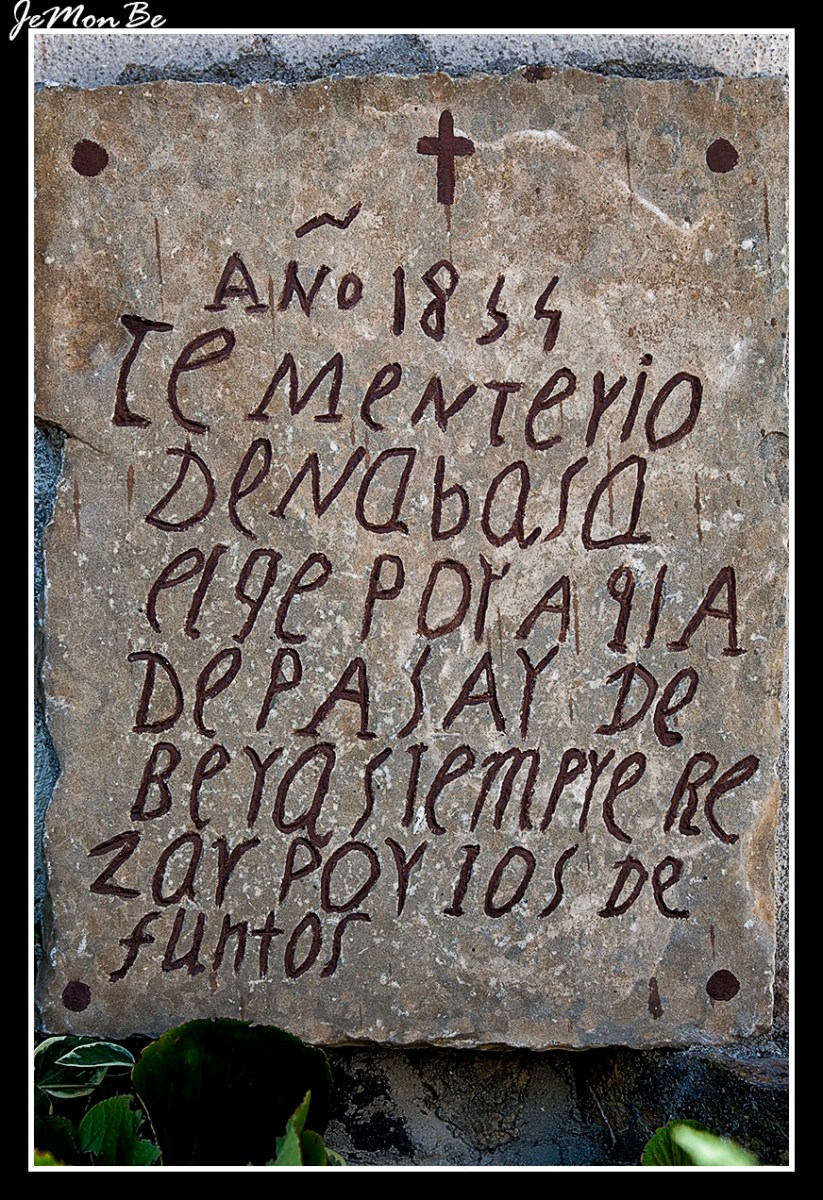 JeMonBe
AÑO 1854
CEMENTERIO
DENABASA
elqe POR AqIA
DEPASAY DE
BERASIEMPRE RE
ZAR POR IOS DE
funtos